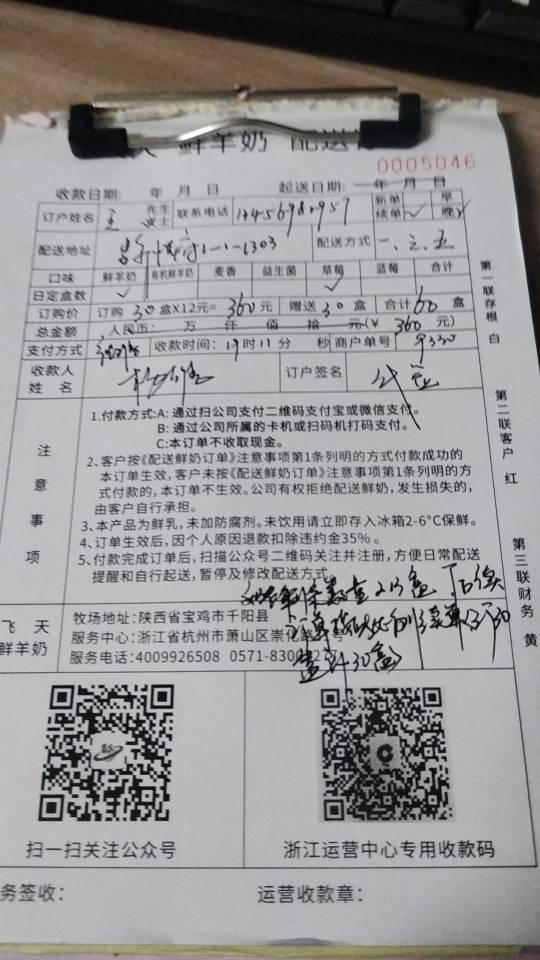 鲜羊奶 配送
0005046
收款日期: 年 月 日 起送日期: 年 月 日
订户姓名 王 先生 女士 联系电话 新单 续单 ✓ 早 晚 ✓
配送地址 1-1-1303 配送方式 一、三、五
口味 鲜羊奶 有机鲜羊奶 麦香 益生菌 草莓 蓝莓 合计
日定盒数 ✓ ✓
订购价 订购 30 盒X12元= 360 元 赠送 30 盒 合计 60 盒
总金额 人民币: 万 仟 佰 拾 元(¥ 360 元)
支付方式 收款时间: 19时11分 秒 商户单号 9330
收款人 姓名 订户签名
注意事项
1.付款方式:A: 通过扫公司支付二维码支付宝或微信支付。
B: 通过公司所属的卡机或扫码机打码支付。
C:本订单不收取现金。
2、客户按《配送鲜奶订单》注意事项第1条列明的方式付款成功的
本订单生效, 客户未按《配送鲜奶订单》注意事项第1条列明的方
式付款的, 本订单不生效。公司有权拒绝配送鲜奶, 发生损失的,
由客户自行承担。
3、本产品为鲜乳, 未加防腐剂。未饮用请立即存入冰箱2-6°C保鲜。
4、订单生效后, 因个人原因退款扣除违约金35%。
5、付款完成订单后, 扫描公众号二维码关注并注册, 方便日常配送
提醒和自行起送, 暂停及修改配送方式
飞天
鲜羊奶
牧场地址: 陕西省宝鸡市千阳县
服务中心: 浙江省杭州市萧山区崇化
服务电话: 4009926508 0571-830
盒计30盒
扫一扫关注公众号
浙江运营中心专用收款码
务签收:
运营收款章:
第一联存根 白
第二联客户 红
第三联财务 黄